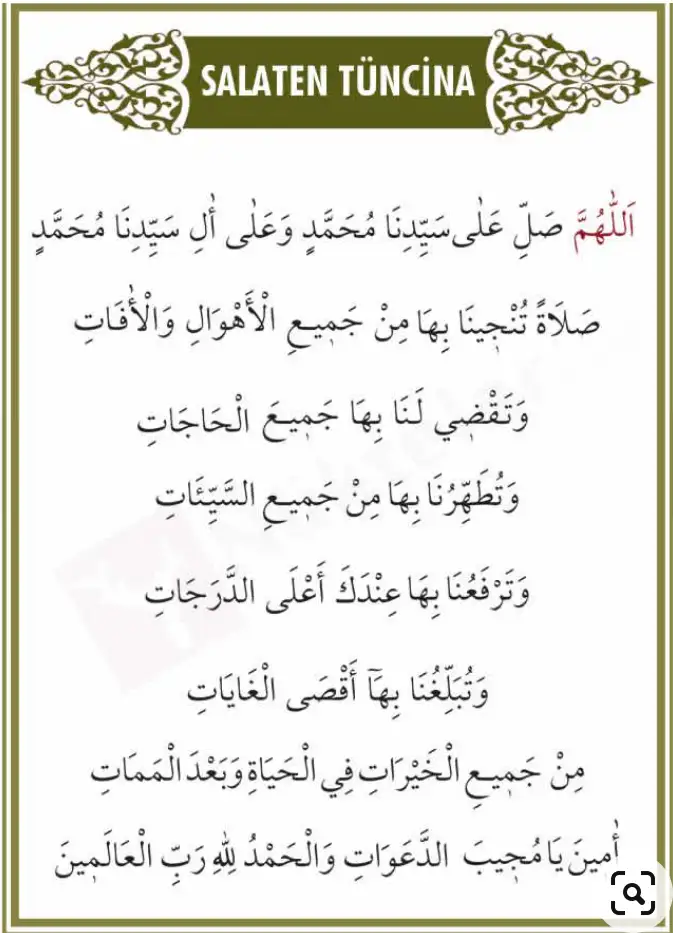 SALATEN TÜNCİNA
اَللّٰهُمَّ صَلِّ عَلٰى سَيِّدِنَا مُحَمَّدٍ وَعَلٰى أٰلِ سَيِّدِنَا مُحَمَّدٍ
صَلَاةً تُنْجِينَا بِهَا مِنْ جَمِيعِ الْأَهْوَالِ وَالْأٰفَاتِ
وَتَقْضِي لَنَا بِهَا جَمِيعَ الْحَاجَاتِ
وَتُطَهِّرُنَا بِهَا مِنْ جَمِيعِ السَّيِّئَاتِ
وَتَرْفَعُنَا بِهَا عِنْدَكَ أَعْلَى الدَّرَجَاتِ
وَتُبَلِّغُنَا بِهَٓا أَقْصَى الْغَايَاتِ
مِنْ جَمِيعِ الْخَيْرَاتِ فِي الْحَيَاةِ وَبَعْدَ الْمَمَاتِ
أٰمِينَ يَا مُجِيبَ الدَّعَوَاتِ وَالْحَمْدُ لِلّٰهِ رَبِّ الْعَالَمِينَ